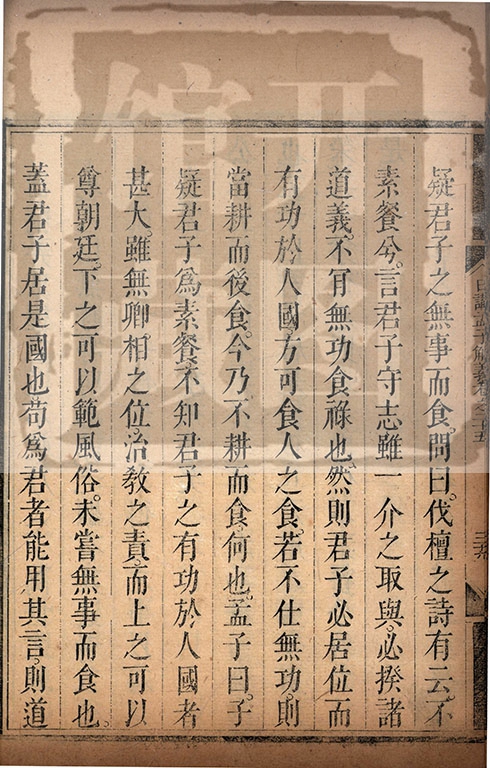 疑君子之無事而食。問曰。伐檀之詩有云。不
素餐兮。言君子守志。雖一介之取與。必揆諸
道義。不肯無功食祿也。然則君子必居位而
有功於人國。方可食人之食。若不仕無功。則
當耕而後食。今乃不耕而食。何也。孟子曰。子
疑君子為素餐。不知君子之有功於人國者
甚大。雖無卿相之位。治教之責。而上之可以
尊朝廷。下之可以範風俗。未嘗無事而食也。
蓋君子居是國也。苟為君者能用其言。則道
日講孟子解義卷之二十五